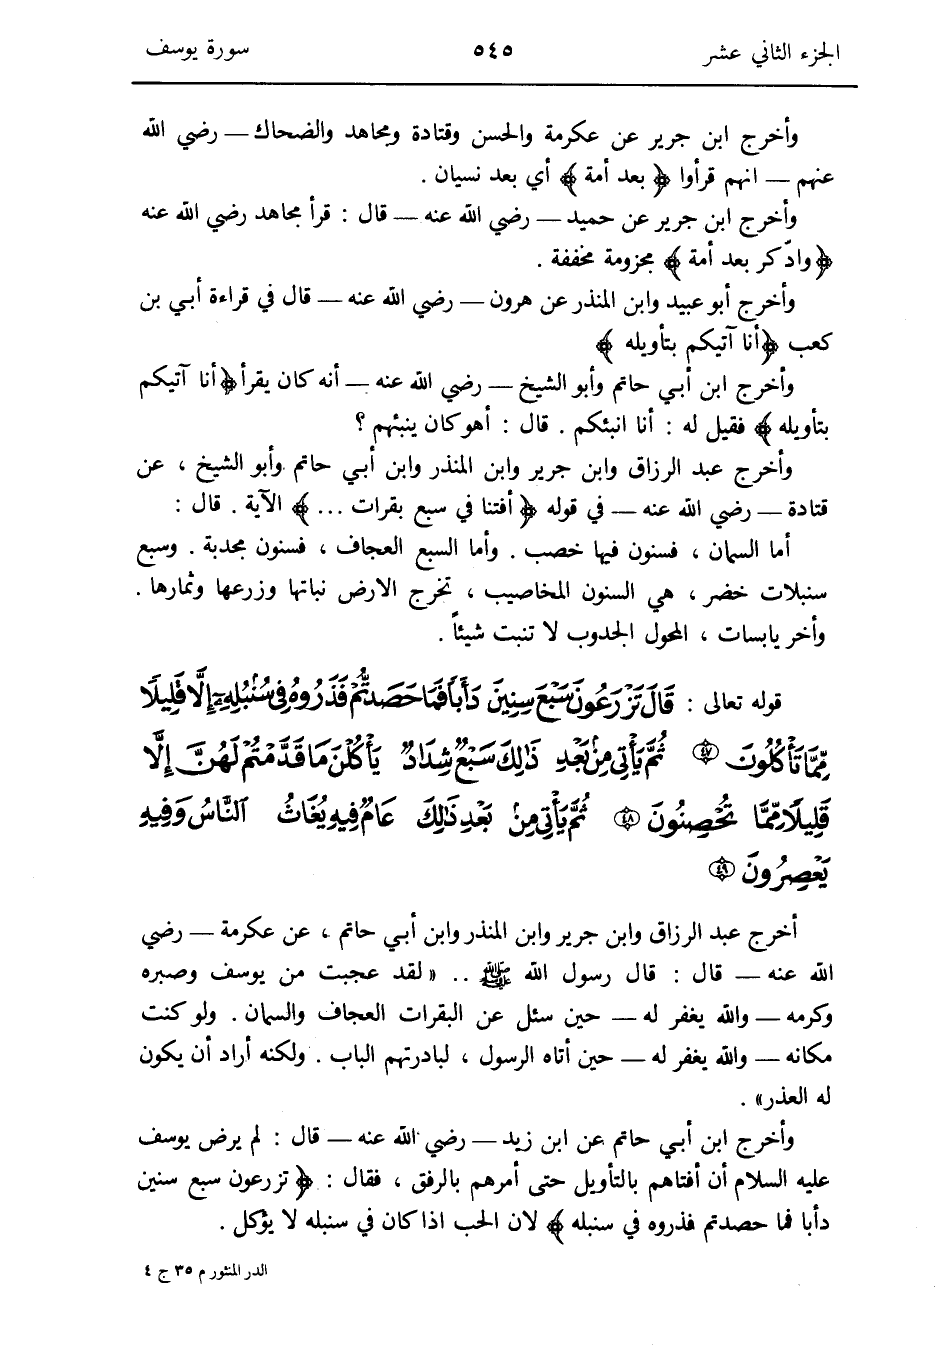 الجزء الثاني عشر ٥٤٥ سورة يوسف
وأخرج ابن جرير عن عكرمة والحسن وقتادة ومجاهد والضحاك — رضي الله
عنهم — انهم قرأوا ﴿ بعد أمة ﴾ أي بعد نسيان .
وأخرج ابن جرير عن حميد — رضي الله عنه — قال : قرأ مجاهد رضي الله عنه
﴿ وادّكر بعد أمة ﴾ مجزومة مخففة .
وأخرج أبو عبيد وابن المنذر عن هرون — رضي الله عنه — قال في قراءة أبي بن
كعب ﴿ أنا آتيكم بتأويله ﴾
وأخرج ابن أبي حاتم وأبو الشيخ — رضي الله عنه — أنه كان يقرأ ﴿ أنا آتيكم
بتأويله ﴾ فقيل له : أنا انبئكم . قال : أهو كان ينبئهم ؟
وأخرج عبد الرزاق وابن جرير وابن المنذر وابن أبي حاتم وأبو الشيخ ، عن
قتادة — رضي الله عنه — في قوله ﴿ أفتنا في سبع بقرات ... ﴾ الآية . قال :
أما السمان ، فسنون فيها خصب . وأما السبع العجاف ، فسنون مجدبة . وسبع
سنبلات خضر ، هي السنون المخاصيب ، تخرج الارض نباتها وزرعها وثمارها .
وأخر يابسات ، المحول الجدوب لا تنبت شيئاً .
قوله تعالى : قَالَ تَزْرَعُونَ سَبْعَ سِنِينَ دَأَبًا فَمَا حَصَدتُّمْ فَذَرُوهُ فِي سُنبُلِهِ إِلَّا قَلِيلًا
مِّمَّا تَأْكُلُونَ ﴿٤٧﴾ ثُمَّ يَأْتِي مِنْ بَعْدِ ذَٰلِكَ سَبْعٌ شِدَادٌ يَأْكُلْنَ مَا قَدَّمْتُمْ لَهُنَّ إِلَّا
قَلِيلًا مِّمَّا تُحْصِنُونَ ﴿٤٨﴾ ثُمَّ يَأْتِي مِنْ بَعْدِ ذَٰلِكَ عَامٌ فِيهِ يُغَاثُ النَّاسُ وَفِيهِ
يَعْصِرُونَ ﴿٤٩﴾
أخرج عبد الرزاق وابن جرير وابن المنذر وابن أبي حاتم ، عن عكرمة — رضي
الله عنه — قال : قال رسول الله ﷺ .. « لقد عجبت من يوسف وصبره
وكرمه — والله يغفر له — حين سئل عن البقرات العجاف والسمان . ولو كنت
مكانه — والله يغفر له — حين أتاه الرسول ، لبادرتهم الباب . ولكنه أراد أن يكون
له العذر» .
وأخرج ابن أبي حاتم عن ابن زيد — رضي الله عنه — قال : لم يرض يوسف
عليه السلام أن أفتاهم بالتأويل حتى أمرهم بالرفق ، فقال : ﴿ تزرعون سبع سنين
دأبا فما حصدتم فذروه في سنبله ﴾ لان الحب اذا كان في سنبله لا يؤكل .
الدر المنثور م ٣٥ ج ٤